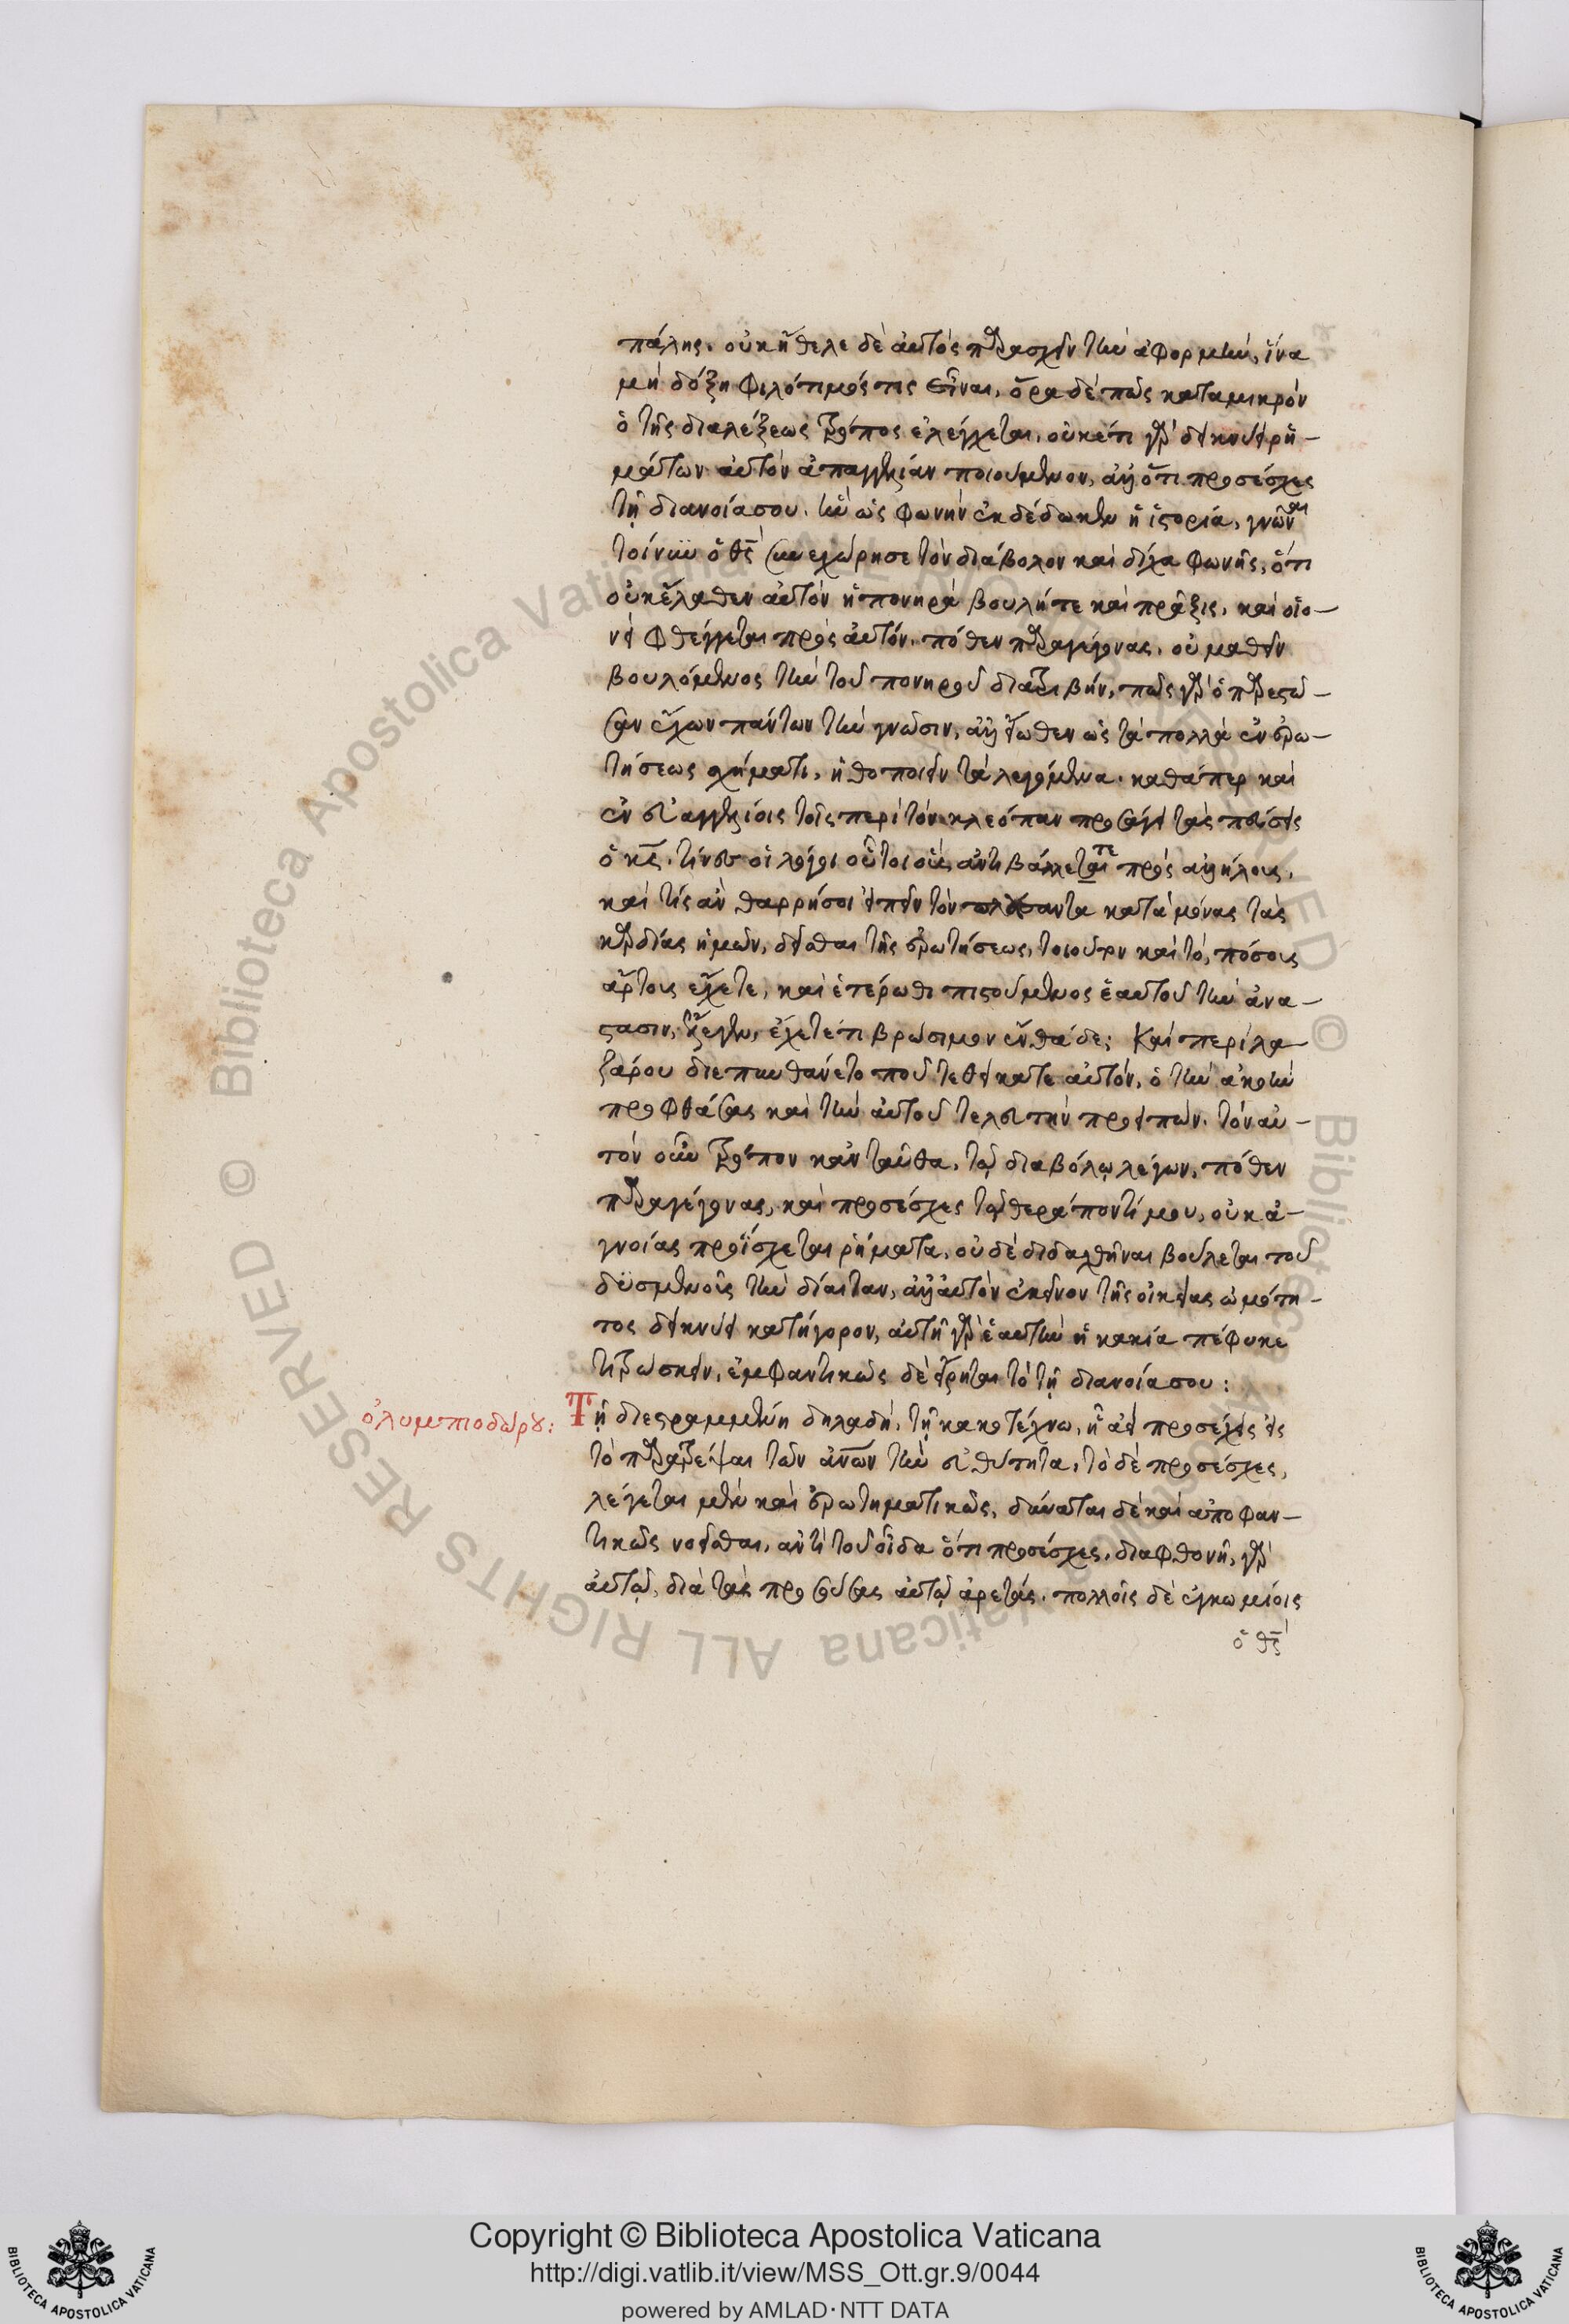 πάλης. οὐκ ἤθελε δὲ αὐτὸς παρασχεῖν τὴν ἀφορμὴν, ἵνα
μὴ δόξη φιλότιμός τις εἶναι. ὅρα δὲ πῶς κατὰ μικρὸν
ὁ τῆς διαλέξεως τρόπος ἐλέγχεται. οὐκέτι γὰρ δείκνυσι ῥη–
μάτων αὐτὸν ἀπαγγελίαν ποιούμενον, ἀλλ' ὅτι προσέσχες
τῇ διανοίᾳ σου. ἣν ὡς φωνὴν ἐκδέδωκεν ἡ ἱστορία, γνῶναι
τοίνυν ὁ θς συνεχώρησε τὸν διάβολον καὶ δίχα φωνῆς, ὅτι
οὐκ ἔλαθεν αὐτὸν ἡ πονηρὰ βουλή τε καὶ πρᾶξις. καὶ οἱο–
νεὶ φθέγγεται πρὸς αὐτὸν. πόθεν παραγέγονας. οὐ μαθεῖν
βουλόμενος τὴν τοῦ πονηροῦ διατριβήν, πῶς γὰρ ὁ παρεστῶ–
σαν ἔχων πάντων τὴν γνῶσιν, ἀλλ' εἴωθεν ὡς τὰ πολλὰ ἐν ἐρω–
τήσεως σχήματι, ἠθοποιεῖν τὰ λεγόμενα. καθάπερ καὶ
ἐν εὐαγγελίοις τοῖς περὶ τὸν κλεόπαν προσάγει τὰς πεύσεις
ὁ κς. τίνες οἱ λόγοι οὗτοι οὓς ἀντιβάλλετε πρὸς ἀλλήλους.
καὶ τίς ἂν θαρρήσοι εἰπεῖν τὸν πλάσαντα κατὰ μόνας τὰς
καρδίας ἡμῶν, δεῖσθαι τῆς ἐρωτήσεως. τοιοῦτον καὶ τὸ, πόσους
ἄρτους ἔχετε, καὶ ἑτέρωθι πιστούμενος ἑαυτοῦ τὴν ἀνά–
στασιν, ἔλεγεν, ἔχετέ τι βρώσιμον ἐνθάδε; Καὶ περὶ λα–
ζάρου διεπυνθάνετο ποῦ τεθείκατε αὐτόν, ὁ τὴν ἀκοὴν
προφθάσας καὶ τὴν αὐτοῦ τελευτὴν προειπών. τὸν αὐ–
τὸν οὖν τρόπον κἀνταῦθα, τῷ διαβόλῳ λέγων, πόθεν
παραγέγονας, καὶ προσέσχες τῷ θεράποντί μου, οὐκ ἀ–
γνοίας προΐσχεται ῥήματα, οὐδὲ διδαχθῆναι βούλεται τοῦ
δυσμενοῦς τὴν δίαιταν, ἀλλ' αὐτὸν ἐκεῖνον τῆς οἰκείας ὠμότη–
τος δείκνυσι κατήγορον, αὐτὴ γὰρ ἑαυτὴν ἡ κακία πέφυκε
τιτρώσκειν, ἐμφαντικῶς δὲ εἴρηται τὸ τῇ διανοίᾳ σου:
ὀλυμπιοδώρου: Τῇ διεστραμμένῃ δηλαδὴ, τῇ κακοτέχνω, ᾗ ἀεὶ προσέχεις εἰς
τὸ παρατρέψαι τῶν ἀνων τὴν εὐθύτητα, τὸ δὲ προσέσχες,
λέγεται μὲν καὶ ἐρωτηματικῶς, δύναται δὲ καὶ ἀποφαν–
τικῶς νοεῖσθαι, ἀντὶ τοῦ οἶδα ὅτι προσέσχες. διαφθονῇ γὰρ
αὐτῷ, διὰ τὰς προσούσας αὐτῷ ἀρετάς. πολλοῖς δὲ ἐγκωμίοις
ὁ θς
Copyright © Biblioteca Apostolica Vaticana
http://digi.vatlib.it/view/MSS_Ott.gr.9/0044
powered by AMLAD·NTT DATA
BIBLIOTECA APOSTOLICA VATICANA
BIBLIOTECA APOSTOLICA VATICANA
© Biblioteca Apostolica Vaticana ALL RIGHTS RESERVED © Biblioteca Apostolica Vaticana ALL RIGHTS RESERVED